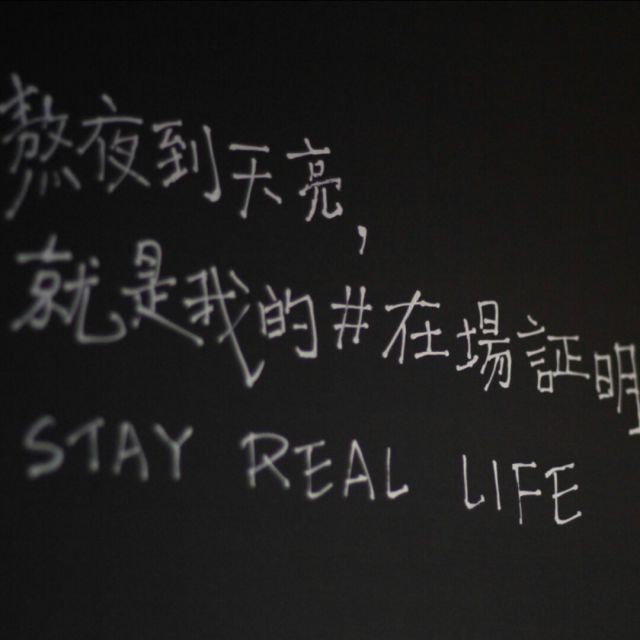 熬夜到天亮,
就是我的#在場証明
STAY REAL LIFE